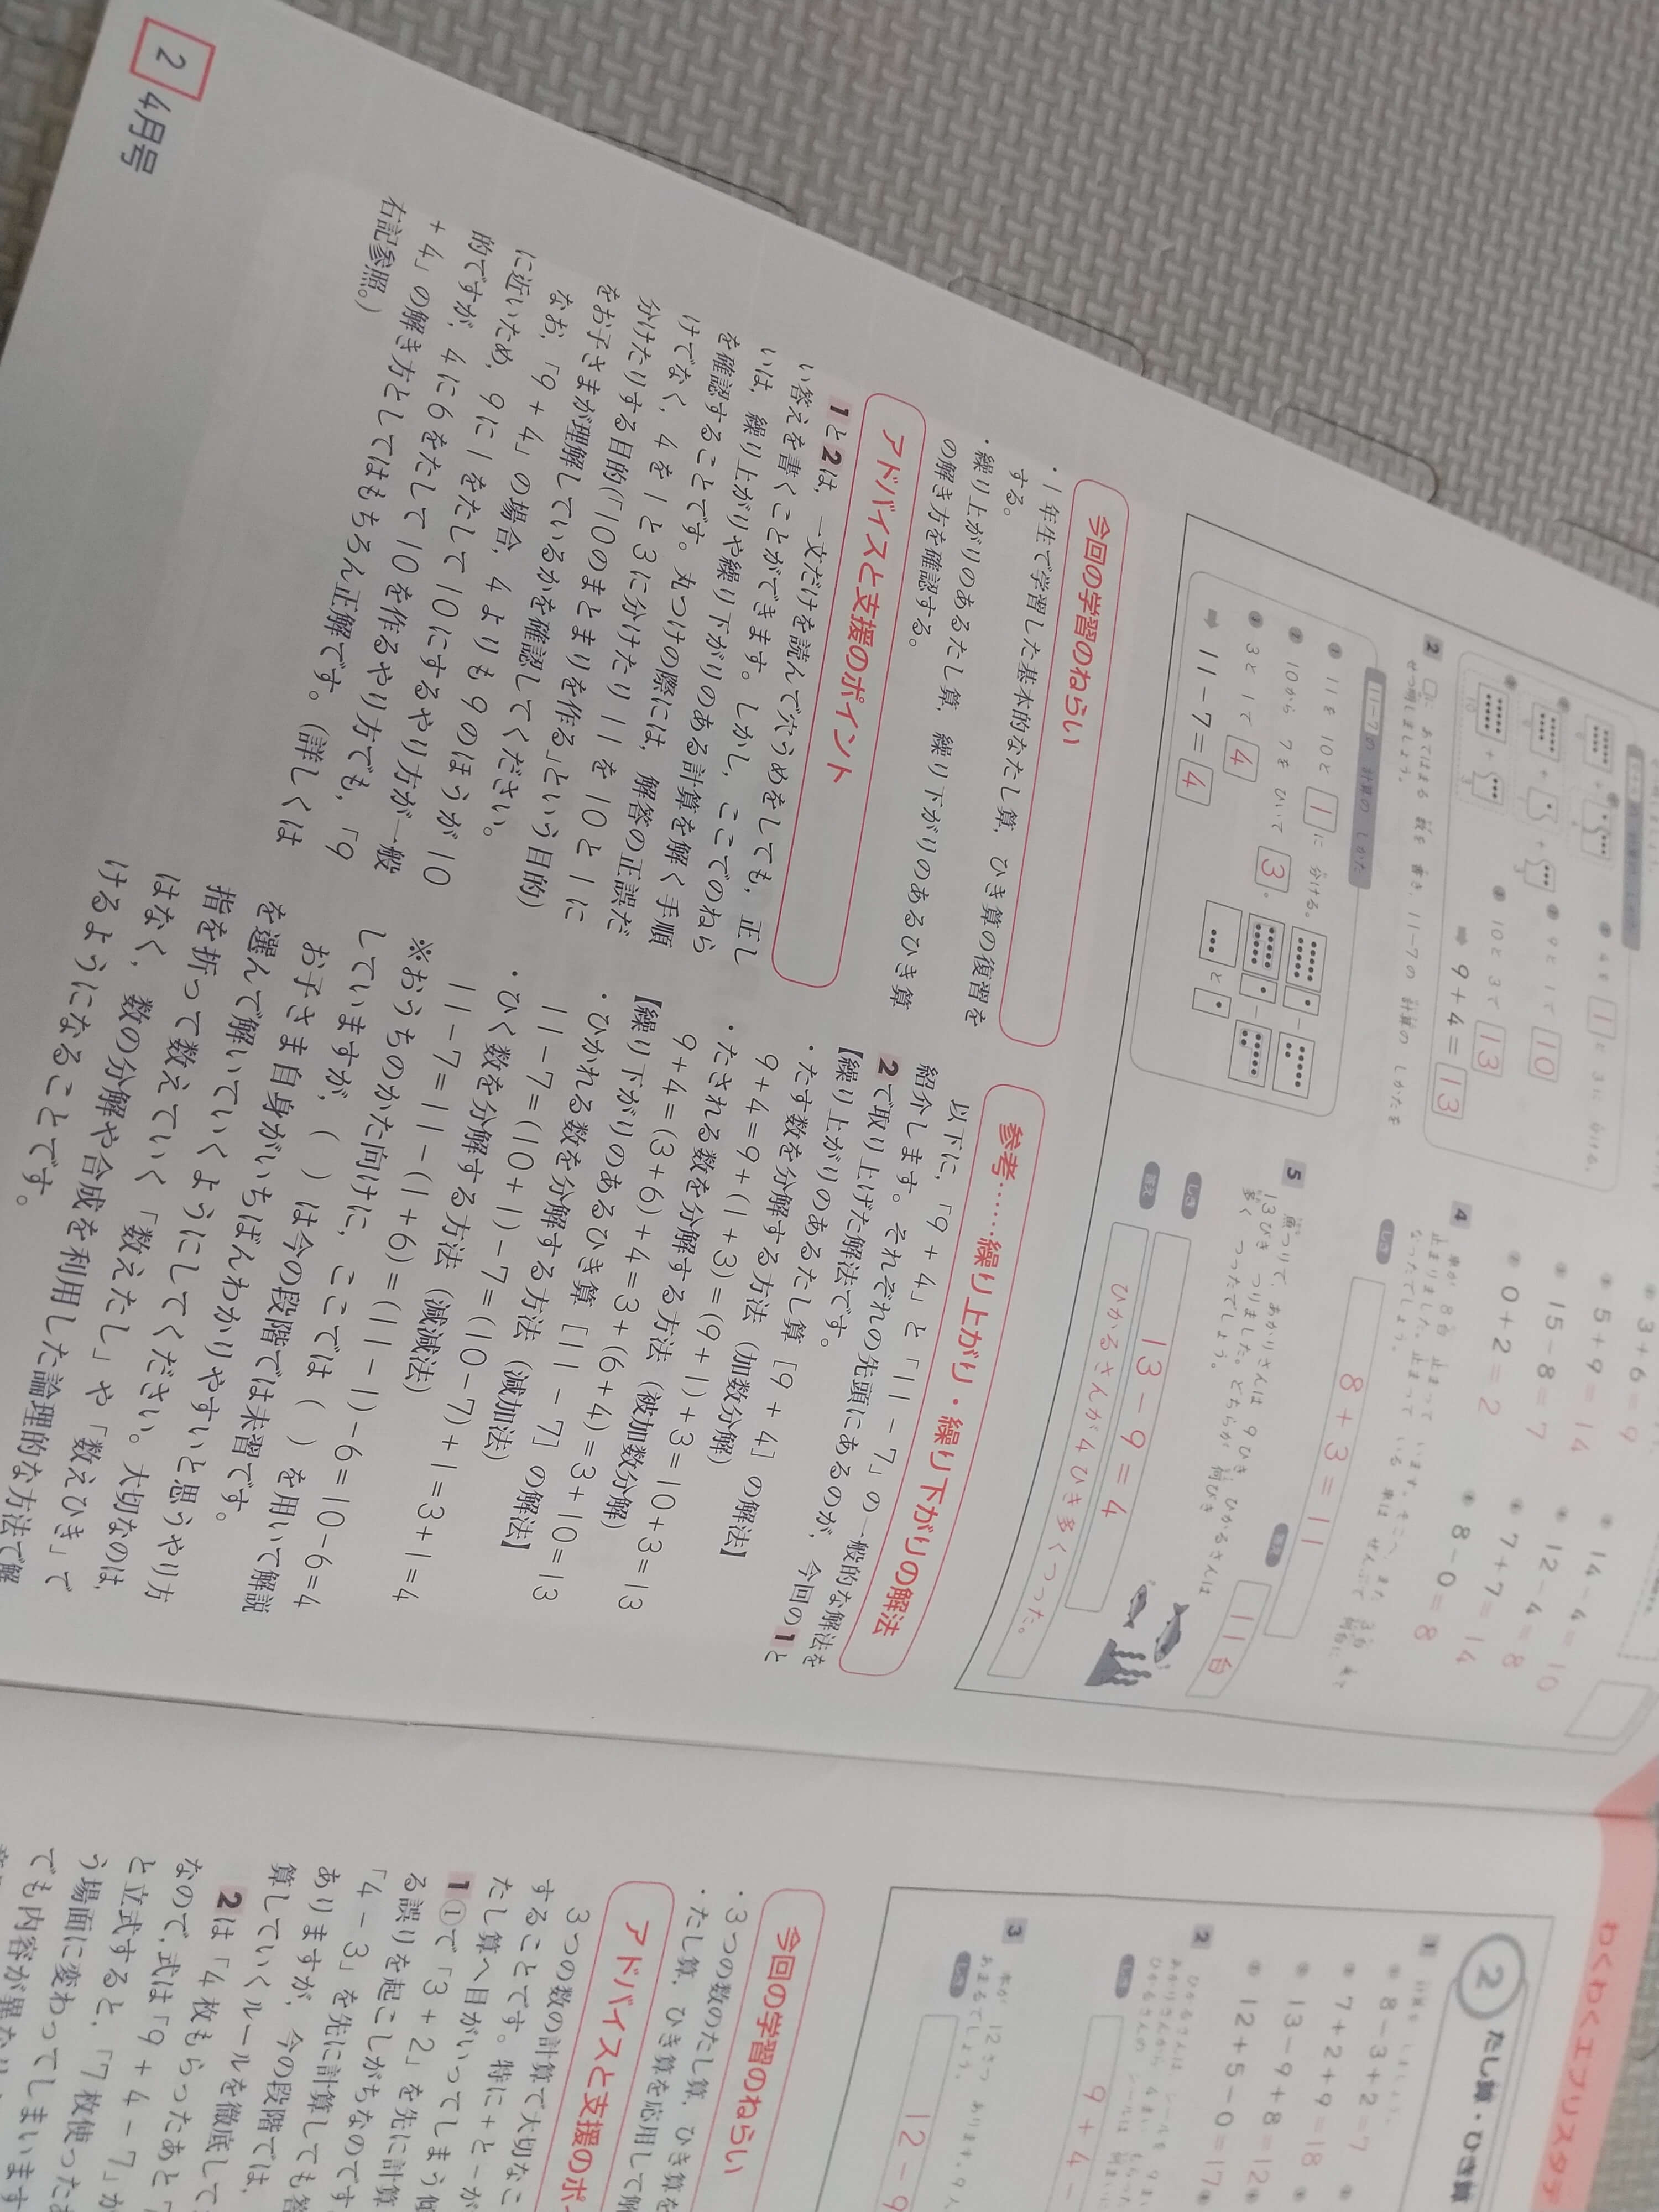 2
□に あてはまる 数を 書き、11−7の 計算の しかたを
せつ明しましょう。
11−7の 計算の しかた
❶ 11を 10と 1に 分ける。
❷ 10から 7を ひいて 3。
❸ 3と 1で 4
➡ 11−7=4
❶ 4を 1と 3に 分ける。
❷ 9と 1で 10
❸ 10と 3で 13
➡ 9+4=13
3+6=9
5+9=14
15−8=7
0+2=2
14−4=10
12−4=8
7+7=14
8−0=8
4
車が 8台 止まって います。そこへ、また 3台 来て
止まりました。止まって いる 車は ぜんぶで 何台に
なったでしょう。
しき
8+3=11
答え
11台
5
魚つりで、あかりさんは 9ひき、ひかるさんは
13びき つりました。どちらが 何びき
多く つったでしょう。
しき
13−9=4
答え
ひかるさんが4ひき多くつった。
今回の学習のねらい
・1年生で学習した基本的なたし算、ひき算の復習を
する。
・繰り上がりのあるたし算、繰り下がりのあるひき算
の解き方を確認する。
アドバイスと支援のポイント
1と2は、一文だけを読んで穴うめをしても、正し
い答えを書くことができます。しかし、ここでのねら
いは、繰り上がりや繰り下がりのある計算を解く手順
を確認することです。丸つけの際には、解答の正誤だ
けでなく、4を1と3に分けたり11を10と1に
分けたりする目的(「10のまとまりを作る」という目的)
をお子さまが理解しているかを確認してください。
なお、「9+4」の場合、4よりも9のほうが10
に近いため、9に1をたして10にするやり方が一般
的ですが、4に6をたして10を作るやり方でも、「9
+4」の解き方としてはもちろん正解です。(詳しくは
右記参照。)
参考……繰り上がり・繰り下がりの解法
以下に、「9+4」と「11−7」の一般的な解法を
紹介します。それぞれの先頭にあるのが、今回の1と
2で取り上げた解法です。
【繰り上がりのあるたし算［9+4］の解法】
・たす数を分解する方法(加数分解)
9+4=9+(1+3)=(9+1)+3=10+3=13
・たされる数を分解する方法(被加数分解)
9+4=(3+6)+4=3+(6+4)=3+10=13
【繰り下がりのあるひき算［11−7］の解法】
・ひかれる数を分解する方法(減加法)
11−7=(10+1)−7=(10−7)+1=3+1=4
・ひく数を分解する方法(減減法)
11−7=11−(1+6)=(11−1)−6=10−6=4
※おうちのかた向けに、ここでは( )を用いて解説
していますが、( )は今の段階では未習です。
お子さま自身がいちばんわかりやすいと思うやり方
を選んで解いていくようにしてください。大切なのは、
指を折って数えていく「数えたし」や「数えひき」で
はなく、数の分解や合成を利用した論理的な方法で解
けるようになることです。
2 4月号
わくわくエブリスタデ
2 たし算・ひき算
1 計算を しましょう。
8−3+2=7
7+2+9=18
13−9+8=12
12+5−0=17
2
しき
9+4−
3
本が 12さつ あります。9人
あまるでしょう。
しき
12−9
今回の学習のねらい
・3つの数のたし算、ひき算を
・たし算、ひき算を応用して解
アドバイスと支援のポ
3つの数の計算で大切なこ
することです。特に+と−が
たし算へ目がいってしまう
1①で「3+2」を先に計算
る誤りを起こしがちなのです
「4−3」を先に計算しても
ありますが、今の段階では、
算していくルールを徹底して
2は「4枚もらったあと
なので、式は「9+4−7」
と立式すると、「7枚使った
う場面に変わってしまいます
でも内容が異なり